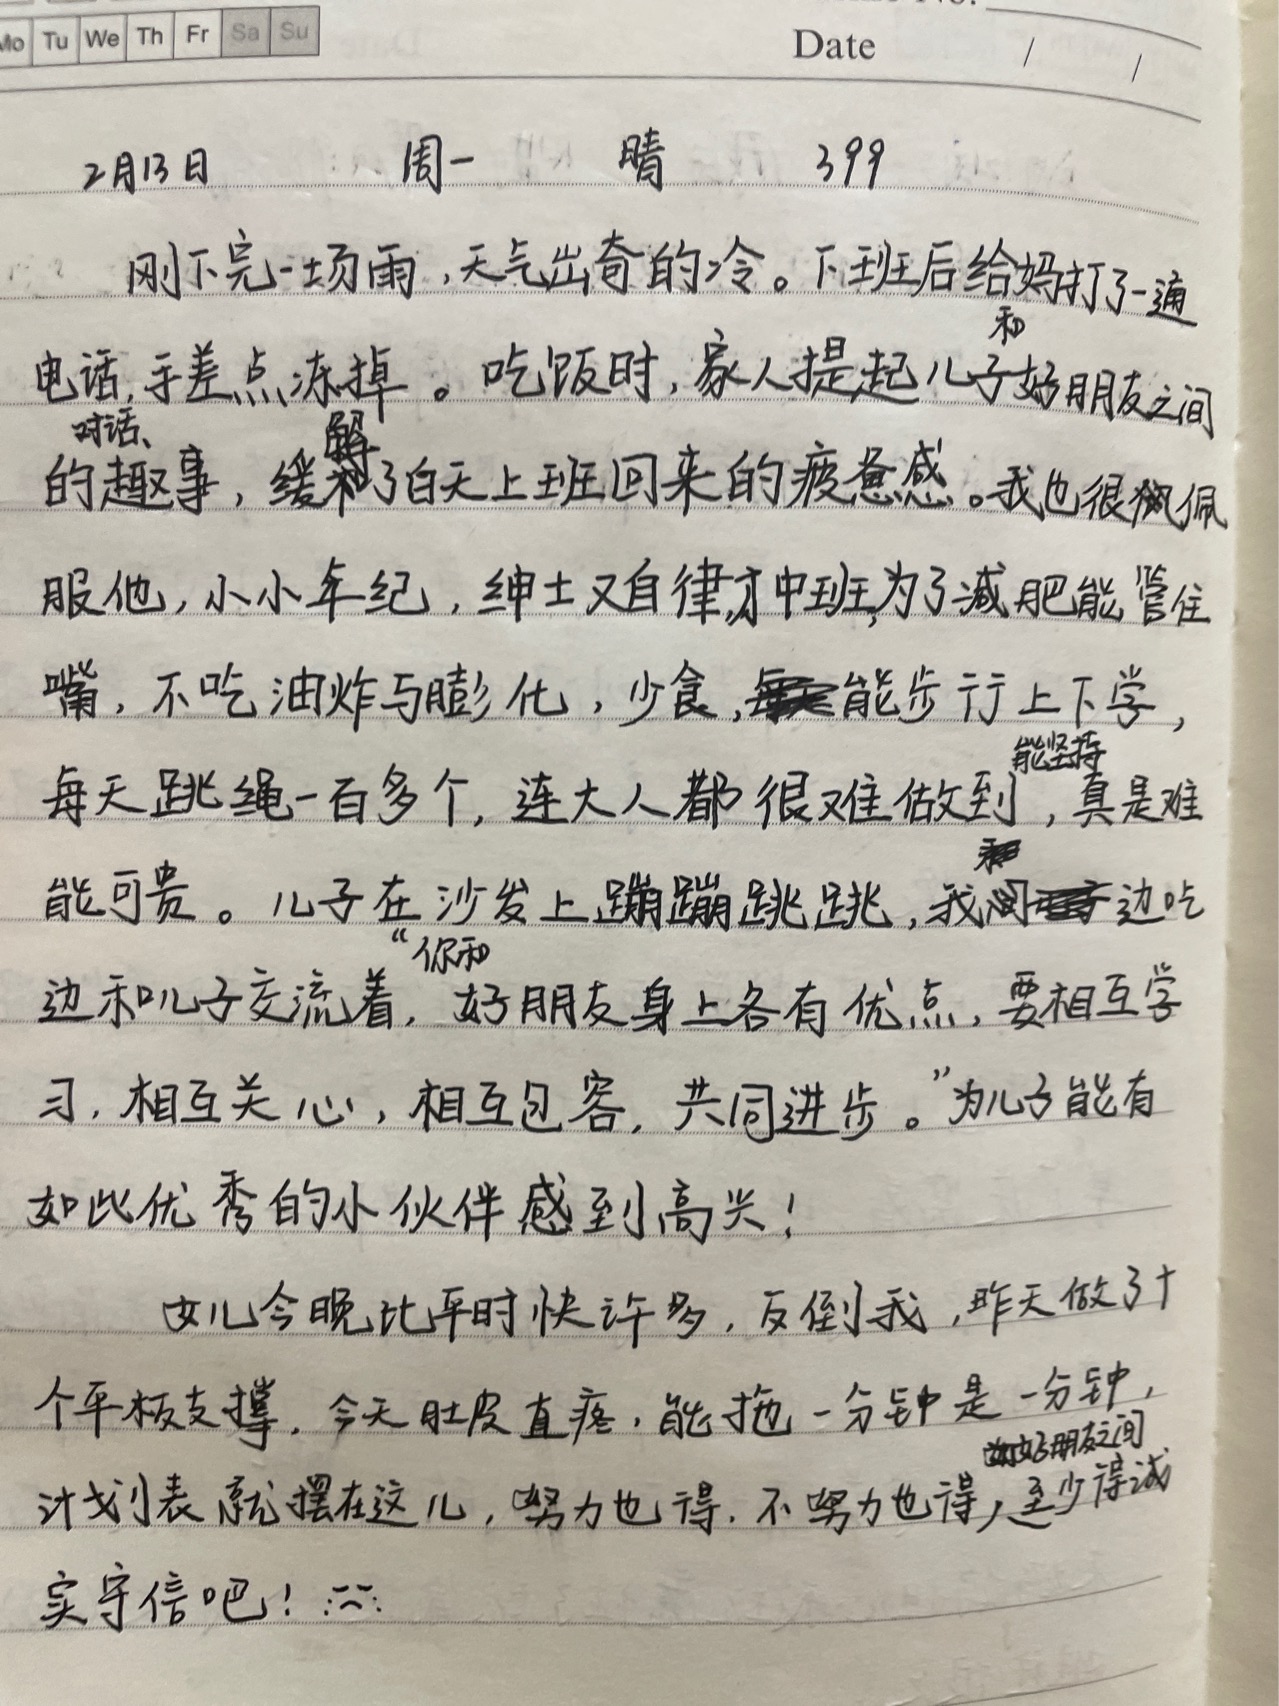 Mo Tu We Th Fr Sa Su
Date / /
2月13日 周一 晴 399
刚下完一场雨,天气出奇的冷。下班后给妈打了一通
电话,手差点冻掉。吃饭时,家人提起儿子和好朋友之间
的对话、趣事,缓解了白天上班回来的疲惫感。我也很佩
服他,小小年纪,绅士又自律,才中班,为了减肥能管住
嘴,不吃油炸与膨化,少食,能步行上下学,
每天跳绳一百多个,连大人都很难做到能坚持,真是难
能可贵。儿子在沙发上蹦蹦跳跳,我边吃
边和儿子交流着,“你和好朋友身上各有优点,要相互学
习,相互关心,相互包容,共同进步。”为儿子能有
如此优秀的小伙伴感到高兴!
女儿今晚比平时快许多,反倒我,昨天做了十
个平板支撑,今天肚皮直疼,能拖一分钟是一分钟,
计划表就摆在这儿,努力也得,不努力也得,好朋友之间至少得诚
实守信吧!